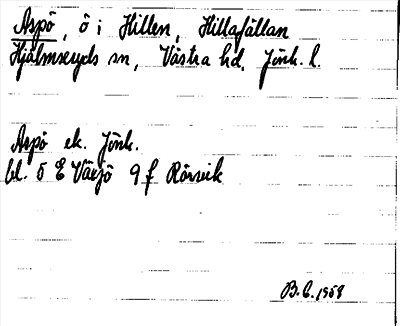 Aspö, ö i Hillen, Hillafällan
Hjälmseryds sn, Västra hd, Jönk. l.
Aspö ek. Jönk.
bl. 5 E Växjö 9 f Rörvik
B.C. 1958